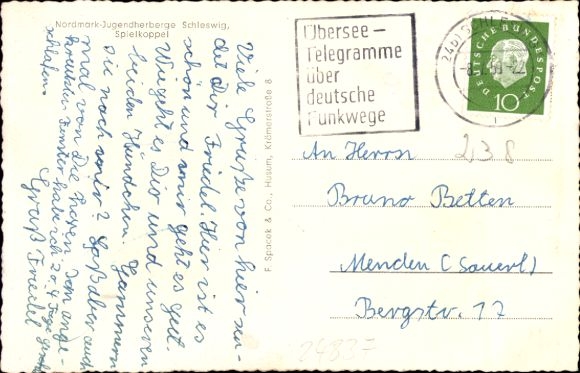 Nordmark-Jugendherberge Schleswig,
Spielkoppel
Viele Grüße von hier sen-
det Dir Friedel. Hier ist es
schön und mir geht es gut.
Wie geht es Dir und unseren
beiden Hündchen. Jammern
sie noch sehr? Laß aber auch
mal von Dir hören. Am
Fenster habe ich 2
schlafen
Gruß Friedel
F. Spacek & Co., Husum, Krämerstraße 8
Übersee-
Telegramme
über
deutsche
Funkwege
(24b) SCHLE
DEUTSCHE BUNDESPOST
10
238
An Herrn
Bruno Betten
Menden (Sauerl)
Bergstr. 17
24837